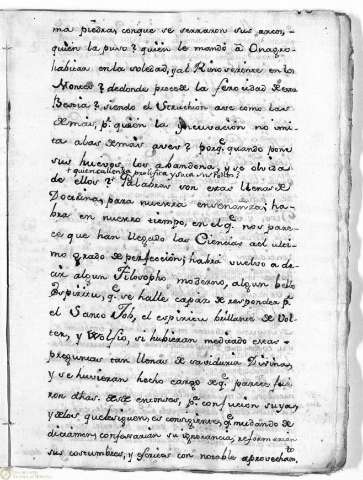 ma piedra, conque se serraron sus arcos,
quien la puso? quien le mando â Onagro
habitar en la soledad, y al Rinoseronte en los
Montes? de donde procede la ferocidad de esta
Bestia? siendo el Struthion ave como las
demás, pr. quién la Incuvación no imi-
ta alas demás aves? porq. quando pone
sus huevos, los abandona, y se olvida
+ quien calienta, prolifica y saca sus Pollos?
de ellos? Palabras son estas llenas de
Doctrina, para nuestra enseñanza; ha-
bra en nuestro tiempo, en el q. nos pare-
ce que han llegado las Ciencias ael ulti-
mo grado de perfección; habrá vuelvo a de-
cir algun Filosopho moderno, algun bello
Espiritu, q. se halle capaz de responder pr.
el Santo Job, el espiritu brillante de Vol-
ter, y Wolfio, si hubieran meditado estas
preguntas tan llenas de saviduria Divina,
y se huvieran hecho cargo de q. parece, fue-
ron dhas. de este entonces, pr. confucion suya,
y de los que les siguen, es consiguiente, q. mudando de
dictamen, confesarian su ignorancia, reformarian
sus costumbres, y con notable aprovecham.to